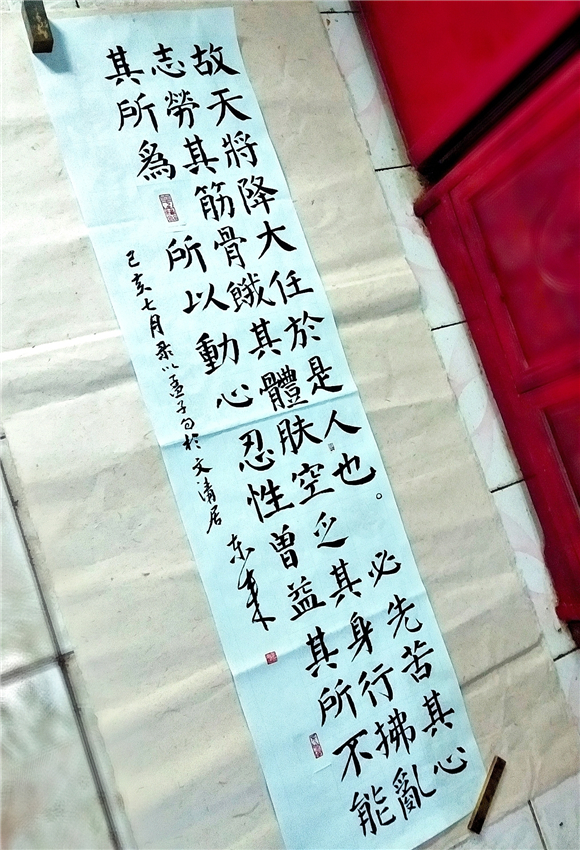 故天將降大任於是人也。必先苦其心
志勞其筋骨餓其體肤空乏其身行拂亂
其所爲所以動心忍性曾益其所不能
己亥七月以孟子句於文清居
东来